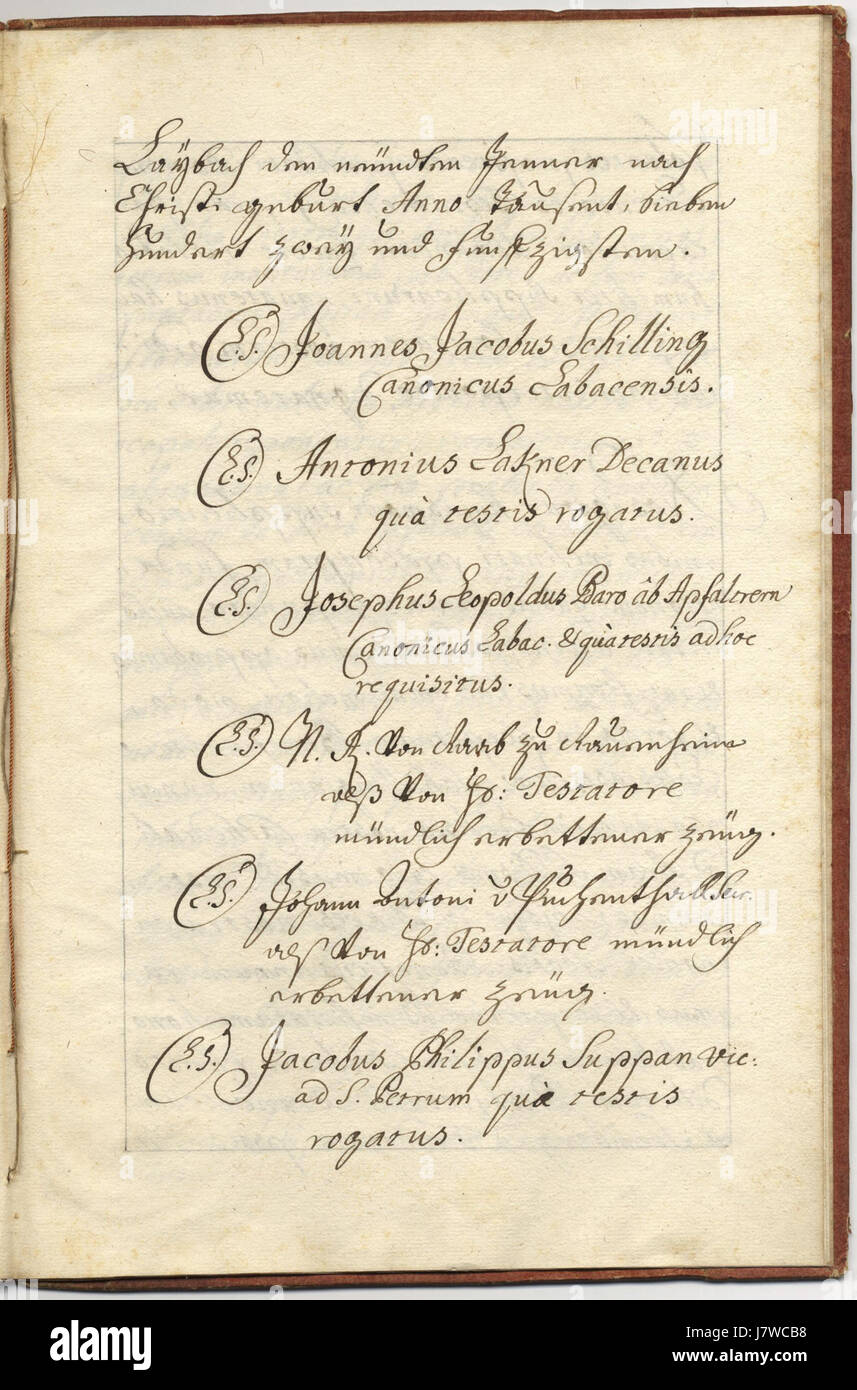 Laÿbach den neündten Jenner nach
Christi geburt Anno Tausent, Sieben
hundert zweÿ und funffzigsten.
(L.S.) Joannes Jacobus Schilling
Canonicus Labacensis.
(L.S.) Antonius Lakner Decanus
quà testis rogatus.
(L.S.) Josephus Leopoldus Baro âb Apfaltrern
Canonicus Labac. & quà testis ad hoc
requisitus.
(L.S.) N. A. Von Raab zu Rauenheim
alß Von H: Testatore
mündlich erbettener zeüg.
(L.S.) Johann Antoni v
alß Von H: Testatore mündlich
erbettener zeüg.
(L.S.) Jacobus Philippus Suppan vic:
ad S. Petrum quà testis
rogatus.
alamy
Image ID: J7WCB8
www.alamy.com